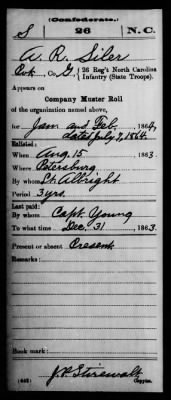 (Confederate.)
S 26 N.C.
A. R. Siler
Pvt, Co. G, 26 Reg't North Carolina
Infantry (State Troops).
Appears on
Company Muster Roll
of the organization named above,
for Jan. and Feb., 1864,
dated July 7, 1864.
Enlisted:
When Aug. 15, 1863
Where Petersburg
By whom Lt. Albright
Period 3 yrs.
Last paid:
By whom Capt. Young
To what time Dec. 31, 1863.
Present or absent Present
Remarks:
Book mark:
J. P. Stirewalt
(642) Copyist.